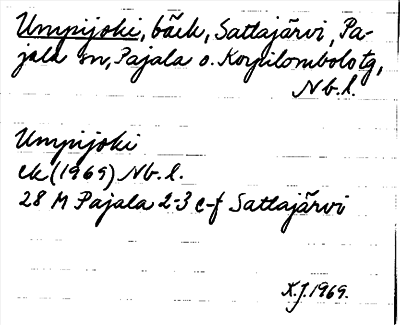 Umpijoki, bäck, Sattajärvi, Pa-
jala sn, Pajala o. Korpilombolo tg,
Nb. l.
Umpijoki
ek (1969) Nb. l.
28 M Pajala 2-3 e-f Sattajärvi
K.J. 1969.